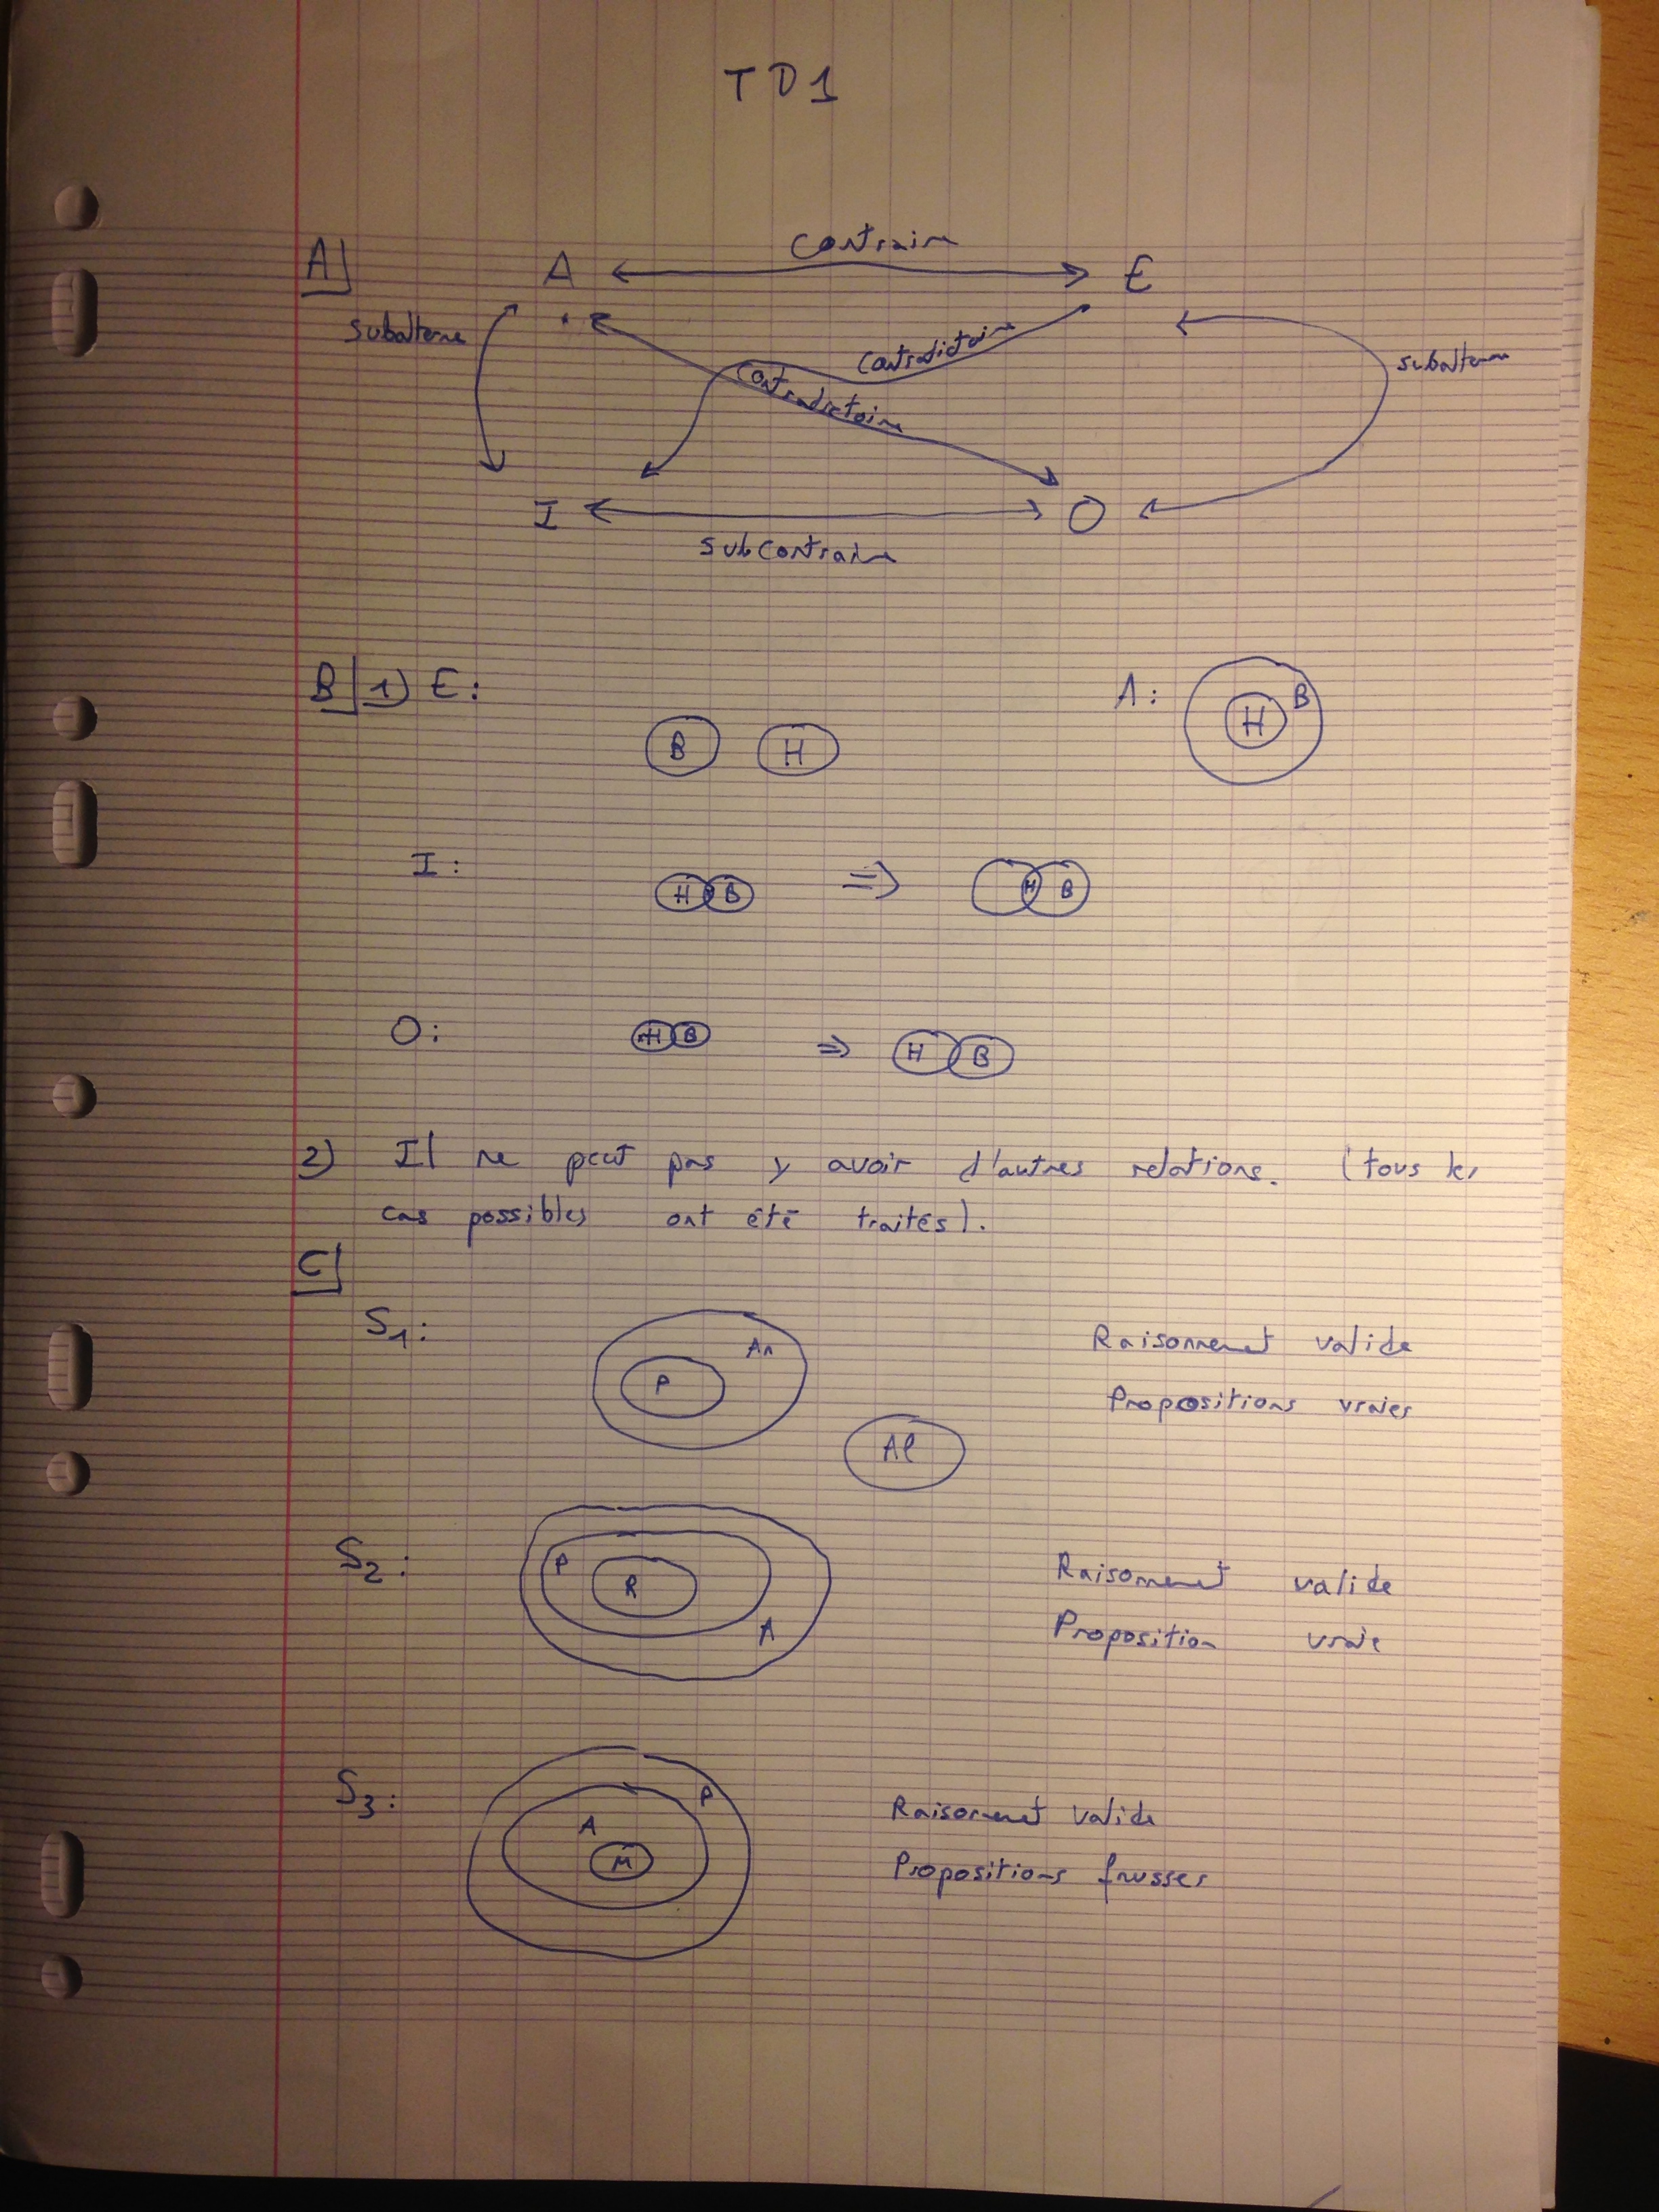 TD1
A]
A
contraire
E
subalterne
contradictoire
subalterne
contradictoire
I
O
subcontraire
B] 1) E:
B H
A:
H B
I:
H B => H B
O:
H B => H B
2) Il ne peut pas y avoir d'autres relations. (tous les
cas possibles ont été traités).
C]
S1:
P An
Al
Raisonnement valide
Propositions vraies
S2:
P R A
Raisonnement valide
Proposition vraie
S3:
A M P
Raisonnement valide
Propositions fausses